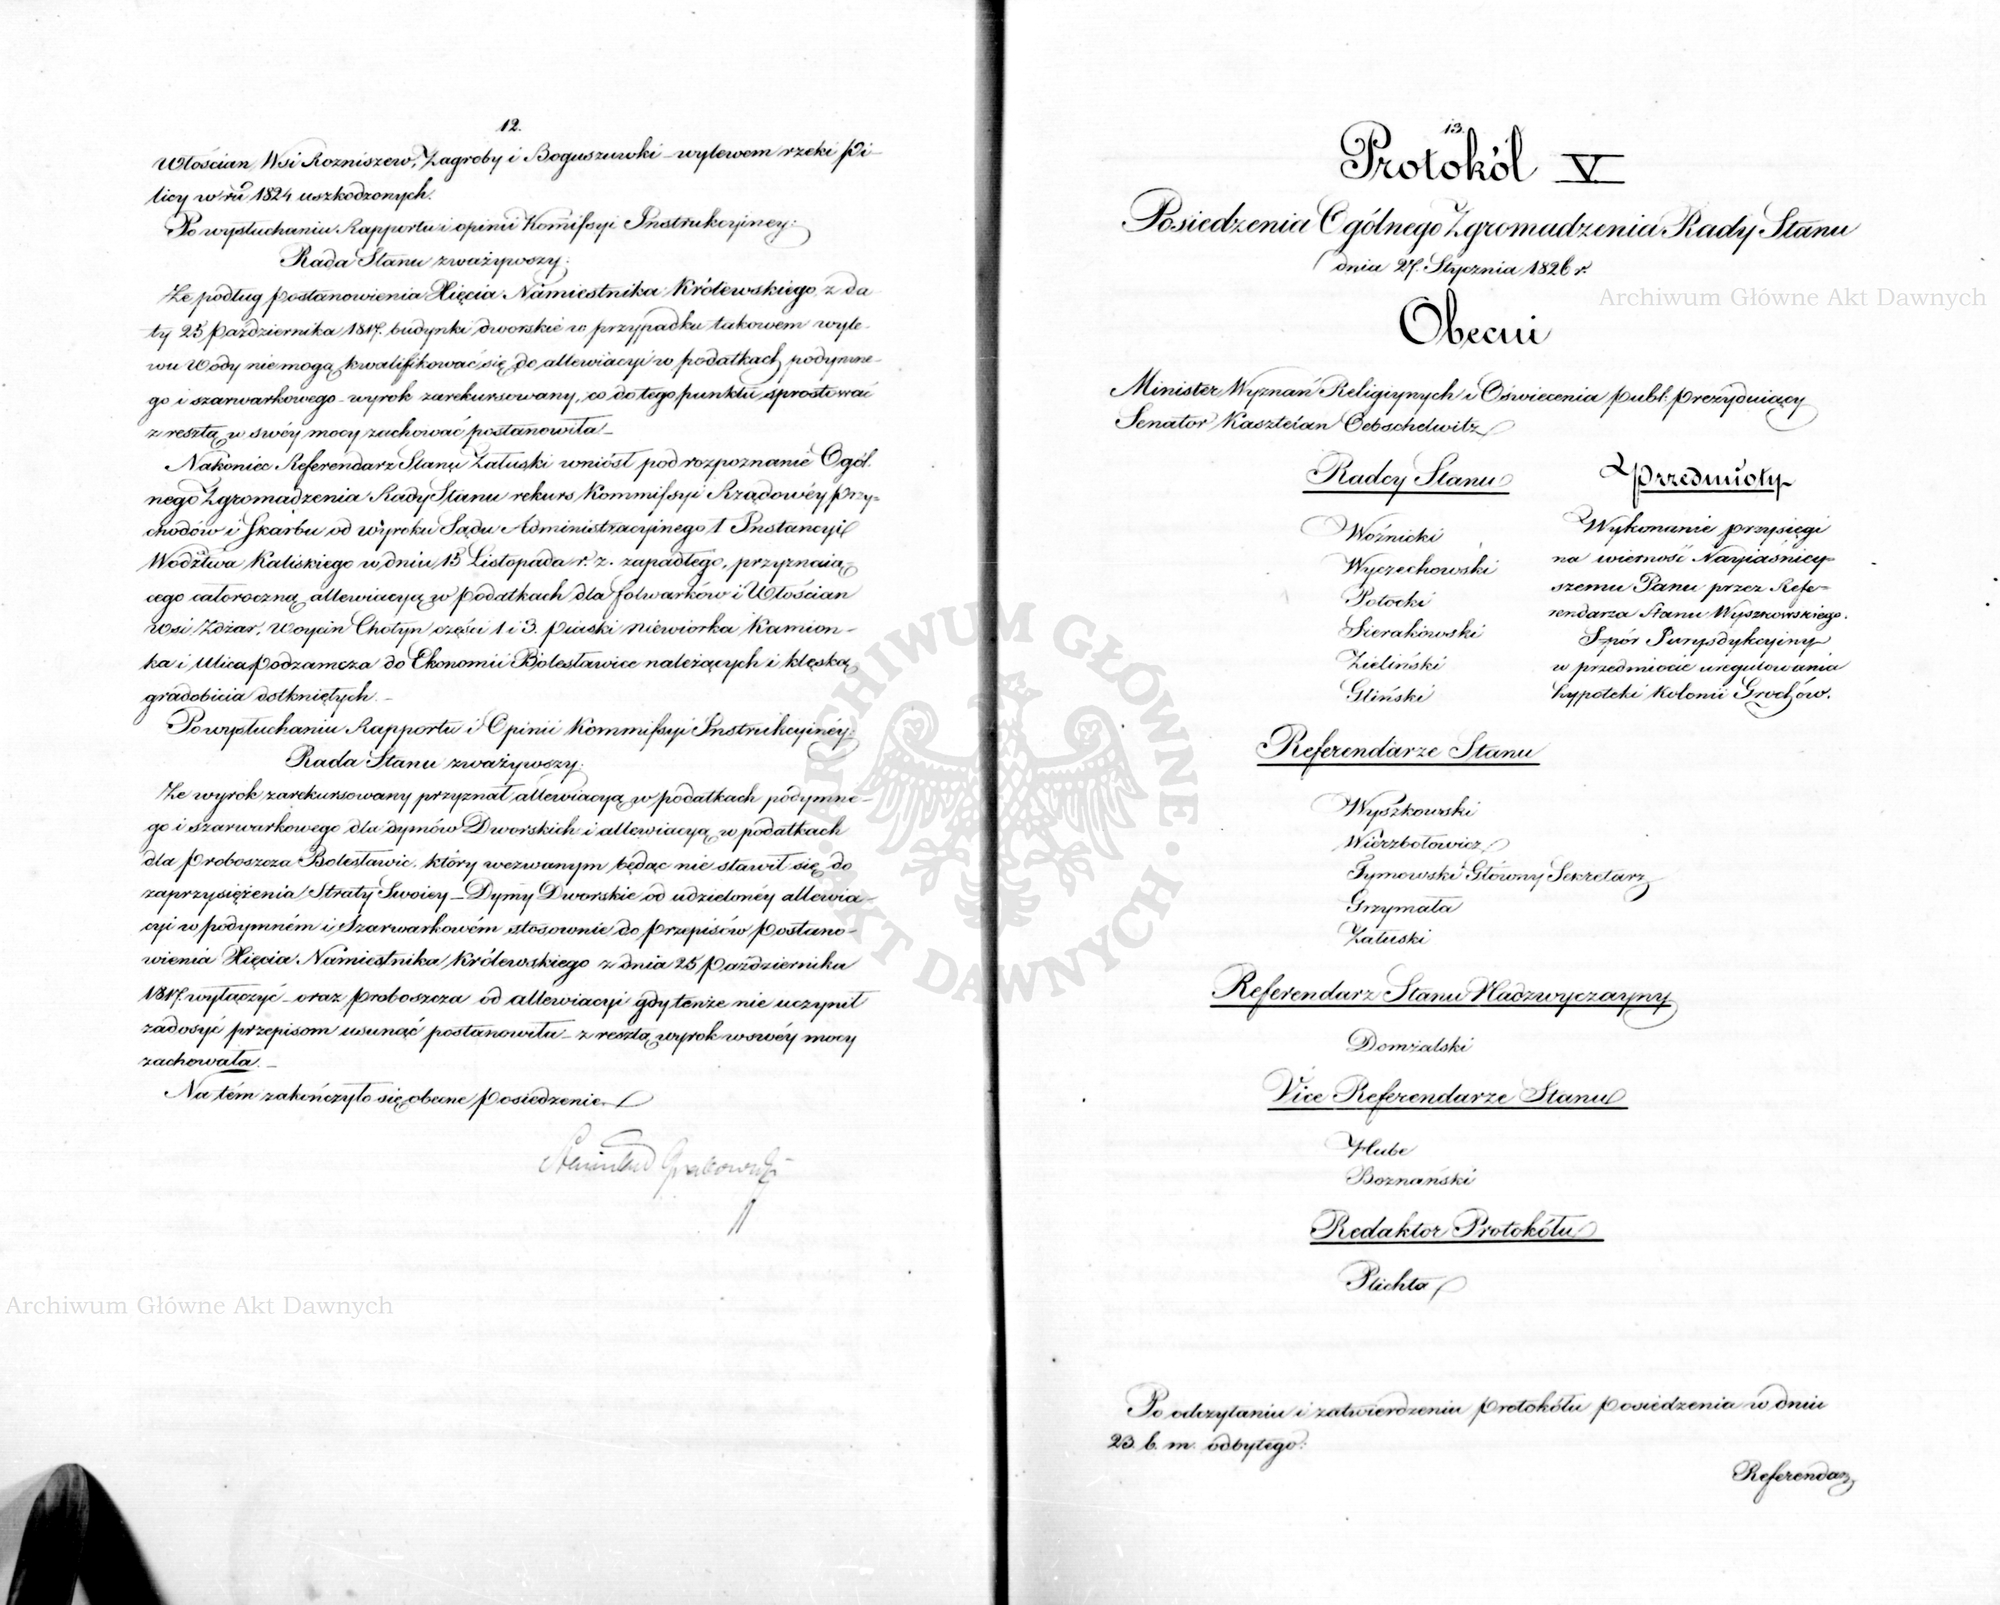 12.
Włościan Wsi Rozniszew, Zagroby i Boguszuwki – wylewem rzeki Pi-
licy w rů 1824 uszkodzonych.
Po wysłuchaniu Rapportu i opinii Komissyi Instrukcyiney:
Rada Stanu zważywszy:
Że podług postanowienia Xięcia Namiestnika Królewskiego z da
ty 25 Października 1817. budynki dworskie w przypadku takowem wyle-
wu Wody nie mogą kwalifikować się do allewiacyi w podatkach podymne-
go i szarwarkowego – wyrok zarekursowany, co do tego punktu sprostować
z resztą w swéy mocy zachować postanowiła –
Nakoniec Referendarz Stanu Załuski wniósł pod rozpoznanie Ogól.
nego Zgromadzenia Rady Stanu rekurs Kommissyi Rządowéy Przy-
chodów i Skarbu od wyroku Sądu Administracyinego 1 Instancyi
Wodztwa Kaliskiego w dniu 15 Listopada r. z. zapadłego, przyznaią-
cego całoroczną allewiacyą w Podatkach dla folwarków i Włościan
wsi Zdżar, Woycin Chotyn części 1 i 3. Piaski Niewiorka Kamion-
ka i Ulica Podzamcza do Ekonomii Bolesławice należących i klęską
gradobicia dotkniętych. –
Po wysłuchaniu Rapportu i Opinii Kommissyi Instrukcyinéy:
Rada Stanu zważywszy:
Że wyrok zarekursowany przyznał allewiacyą w podatkach podymne-
go i szarwarkowego dla dymów Dworskich i allewiacyą w podatkach
dla Proboszcza Bolesławic, który wezwanym będąc nie stawił się do
zaprzysiężenia Straty Swoiey – Dymy Dworskie od udzielonéy allewia-
cyi w podymném i Szarwarkowém stosownie do Przepisów Postano-
wienia Xięcia Namiestnika Królewskiego z dnia 25 Października
1817. wyłączyć – oraz Proboszcza od allewiacyi gdy tenże nie uczynił
zadosyć przepisom usunąć postanowiła – z resztą wyrok w swéy mocy
zachowała. –
Na tém zakończyło się obecne Posiedzenie.
Stanisław Grabowski
13.
Protokół V
Posiedzenia Ogólnego Zgromadzenia Rady Stanu
dnia 27. Stycznia 1826 r.
Obecni
Minister Wyznań Religiynych i Oświecenia publ: prezyduiący
Senator Kasztelan Oebschelwitz
Radcy Stanu
Woźnicki
Wyczechowski
Potocki
Sierakowski
Zieliński
Gliński
Przedmioty
Wykonanie przysięgi
na wierność Nayiaśniey-
szemu Panu przez Refe-
rendarza Stanu Wyszkowskiego.
Spór Jurysdykcyiny
w przedmiocie uregulowania
hypoteki Kolonii Grochów.
Referendarze Stanu
Wyszkowski
Wierzbołowicz
Tymowski Główny Sekretarz
Grzymała
Załuski
Referendarz Stanu Nadzwyczayny
Domżalski
Vice Referendarze Stanu
Hube
Boznański
Redaktor Protokółu
Plichta
Po odczytaniu i zatwierdzeniu Protokółu Posiedzenia w dniu
23. b. m. odbytego:
Referendarz
Archiwum Główne Akt Dawnych
Archiwum Główne Akt Dawnych
ARCHIWUM GŁÓWNE AKT DAWNYCH